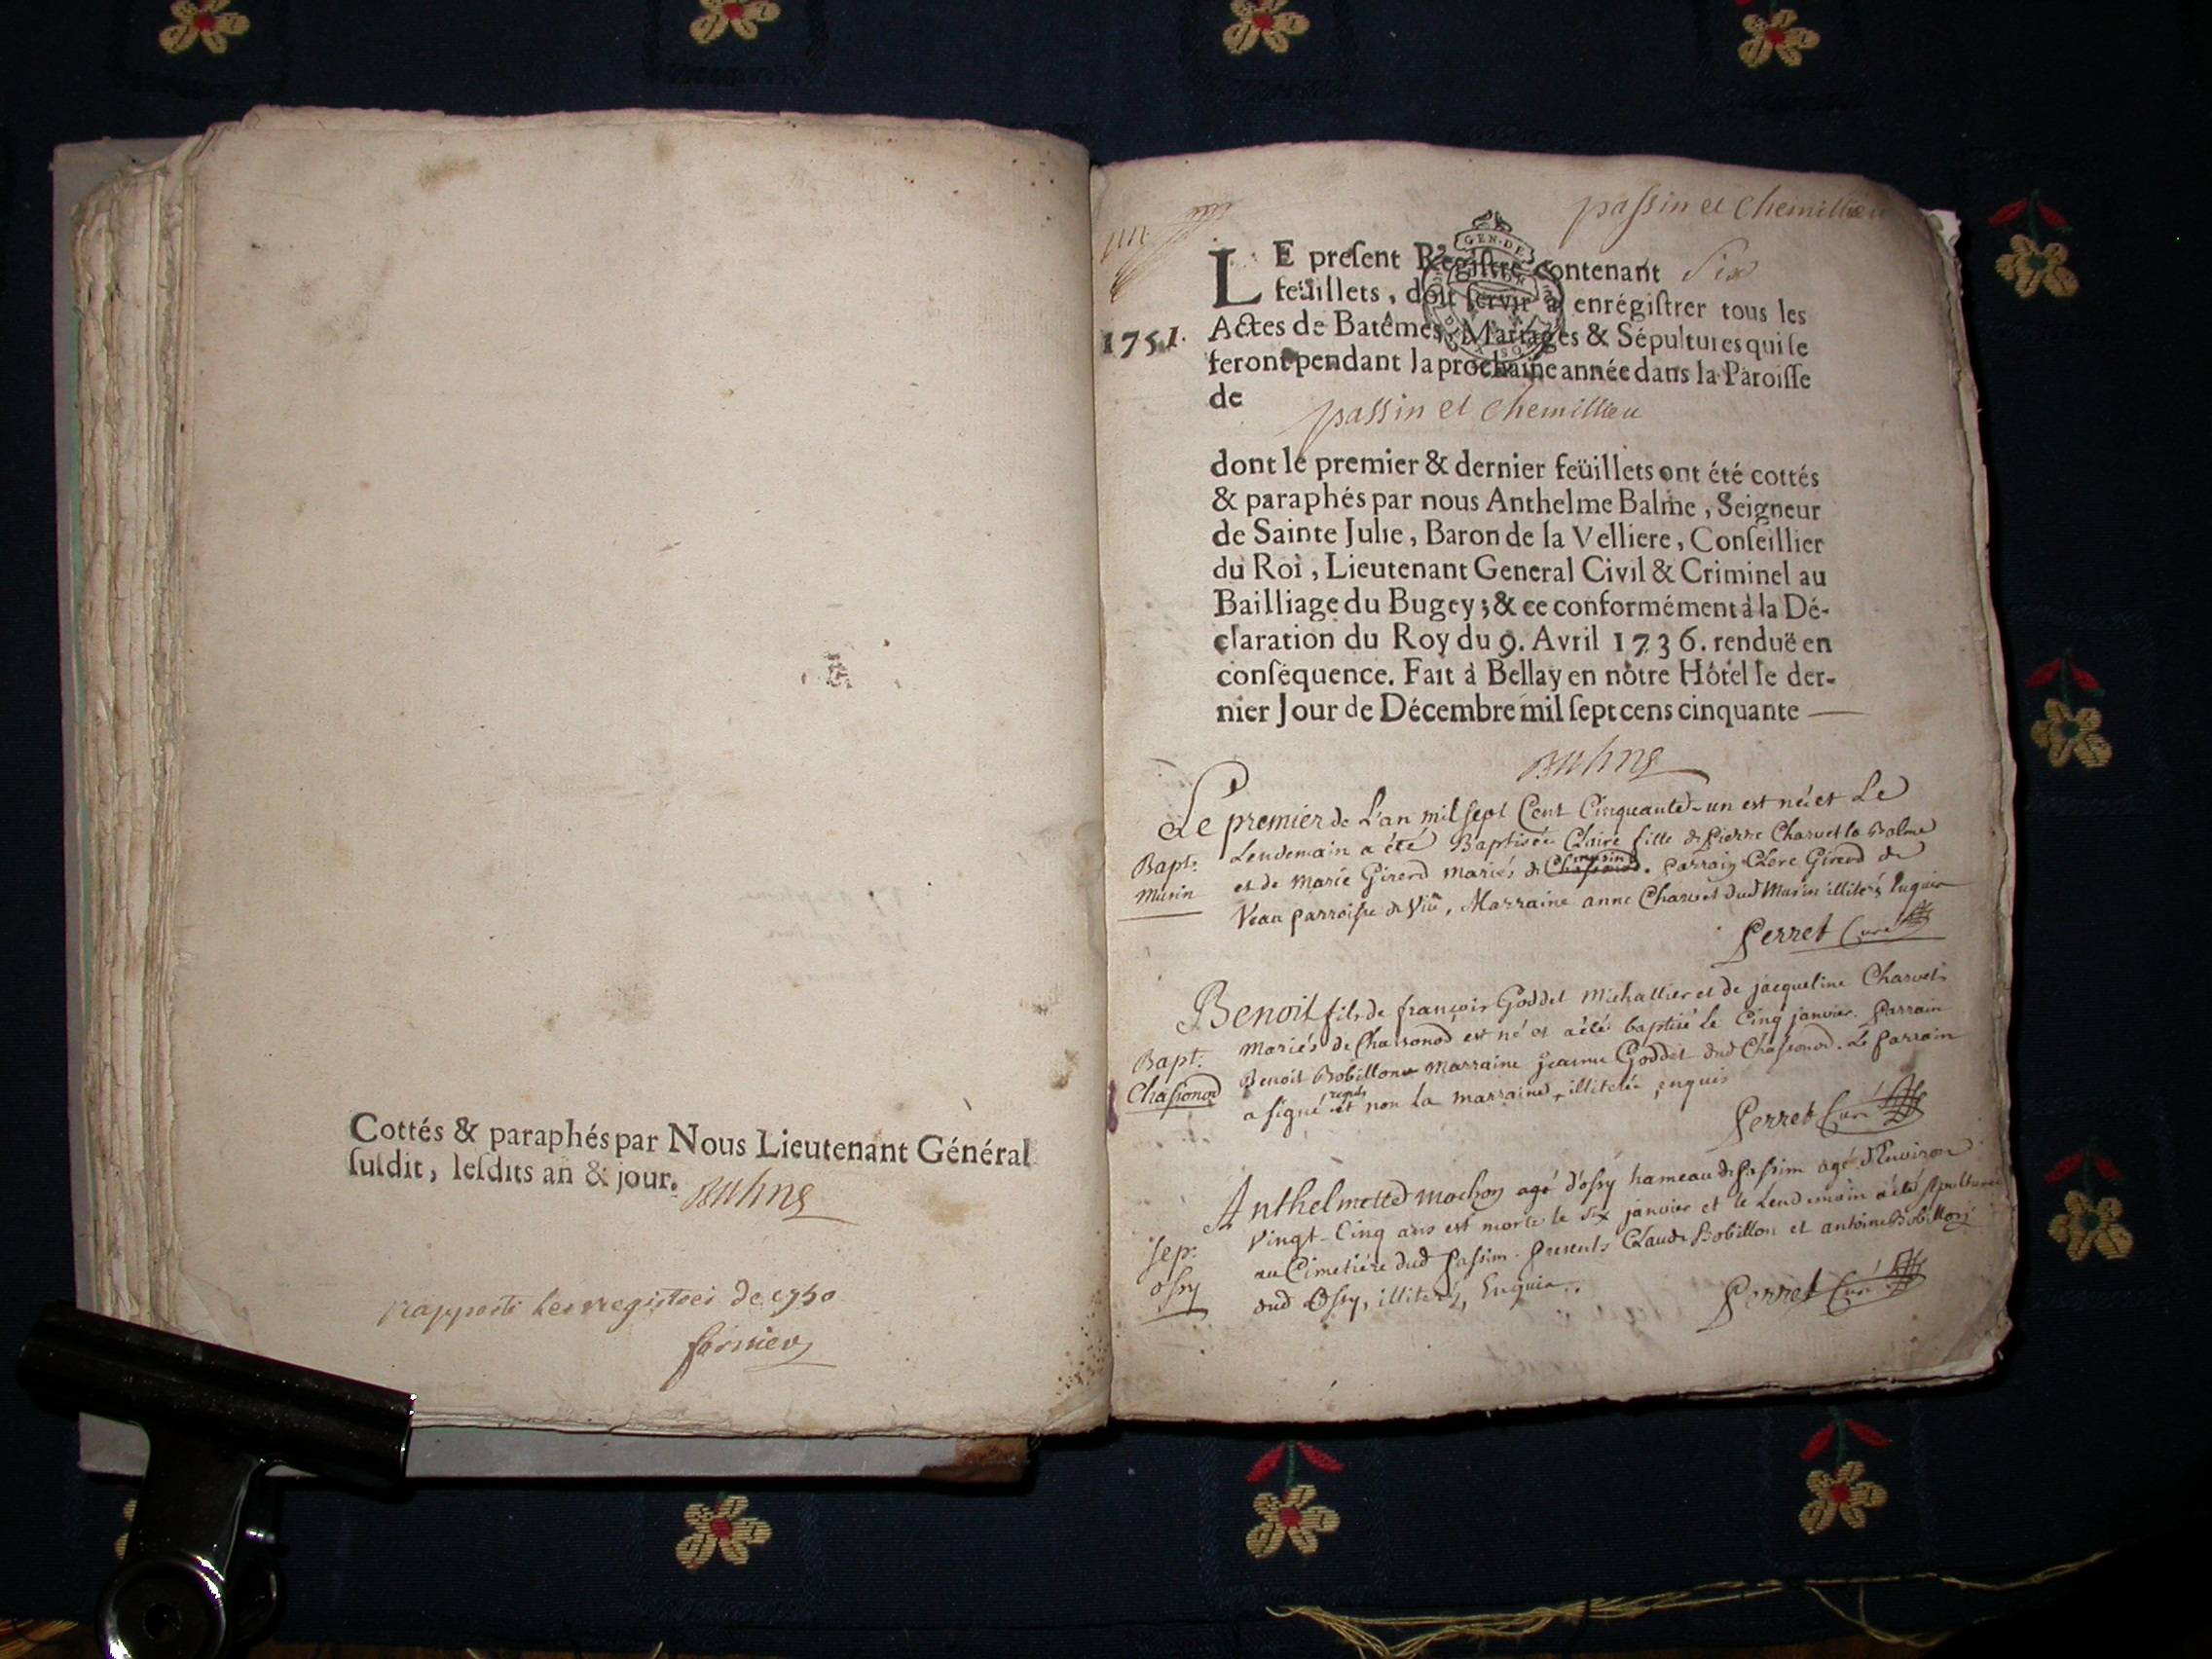 Cottés & paraphés par Nous Lieutenant Général
suſdit, leſdits an & jour.
Balme
rapporté les registres de 1750
passin et Chemillieu
LE preſent Regiſtre contenant Six
feüillets, doit ſervir à enrégiſtrer tous les
1751. Actes de Batêmes, Mariages & Sépultures qui ſe
feront pendant la prochaine année dans la Paroiſſe
de passin et Chemillieu
dont le premier & dernier feüillets ont été cottés
& paraphés par nous Anthelme Balme, Seigneur
de Sainte Julie, Baron de la Velliere, Conſeillier
du Roi, Lieutenant General Civil & Criminel au
Bailliage du Bugey; & ce conformément à la Dé-
claration du Roy du 9. Avril 1736. renduë en
conſéquence. Fait à Bellay en nôtre Hôtel le der-
nier Jour de Décembre mil ſept cens cinquante
Balme
Le premier de L'an mil ſept Cent Cinquante-un est née et Le
Bapt. Lendemain a été Baptisée Claire fille de Pierre Charvet la Balme
Musin et de Marie Girerd mariés de Musin. Parrain Girerd de
Parroisse de Marraine anne Charvet dud Musin illiterés Enquis
Perret Curé
Benoit fils de françois Goddet Michallier et de jacqueline Charvet
Bapt. Mariés de Chassonod est né et a été baptisé Le Cinq janvier. Parrain
Chaſsonod Benoit Bobillon Marraine jeanne Goddet dud Chaſsonod. Le Parrain
a ſigné et non La marraine, illiterée, enquis
Perret Curé
Anthelmette mochon agé d'oſsy hameau de Paſsim agé d'Environ
Sep. Vingt-Cinq ans est morte le six janvier et le Lendemain a été sepulturée
oſsy au Cimetiére dud Paſsim. Presents Claude Bobillon et antoine Bobillon
dud Oſsy, illiterés, Enquis.
Perret Curé